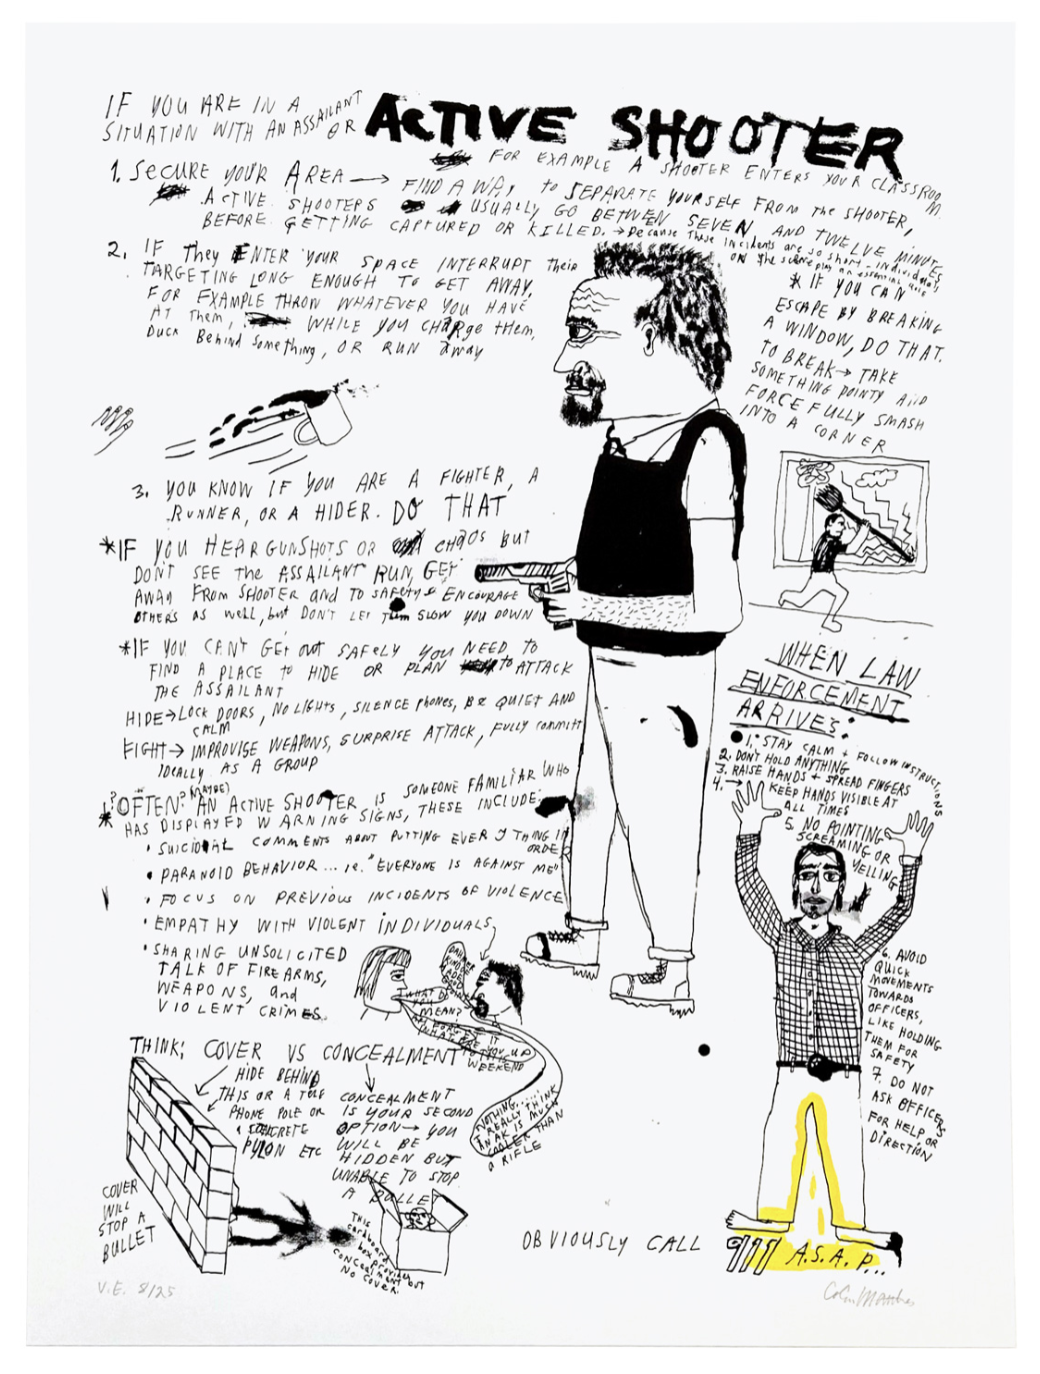 IF YOU ARE IN A
SITUATION WITH AN ASSAILANT
OR
ACTIVE SHOOTER
FOR EXAMPLE A SHOOTER ENTERS YOUR CLASSROOM.
1. SECURE YOUR AREA → FIND A WAY to SEPARATE YOURSELF FROM the SHOOTER,
ACTIVE SHOOTERS USUALLY GO BETWEEN SEVEN AND TWELVE MINUTES
BEFORE GETTING CAPTURED OR KILLED. → Because These incidents are so short - individuals
ON the scene play an essential role
2. IF They ENTER YOUR SPACE INTERRUPT their
TARGETING LONG ENOUGH TO GET AWAY.
FOR EXAMPLE THROW WHATEVER YOU HAVE
AT them, WHILE YOU CHARge them,
Duck Behind Something, OR RUN away
* IF YOU CAN
ESCAPE BY BREAKING
A WINDOW, DO THAT.
TO BREAK → TAKE
SOMETHING POINTY AND
FORCEFULLY SMASH
INTO A CORNER
3. YOU KNOW IF YOU ARE A FIGHTER, A
RUNNER, OR A HIDER. DO THAT
*IF YOU HEAR GUNSHOTS OR CHAOS BUT
DON'T SEE the ASSAILANT RUN, GET
AWAY FROM SHOOTER and TO SAFETY & ENCOURAGE
OTHERS AS well, but DON'T LET them SLOW YOU DOWN
*IF YOU CAN'T GET out SAFELY YOU NEED TO
FIND A PLACE to HIDE OR PLAN to ATTACK
THE ASSAILANT
HIDE → LOCK DOORS, NO LIGHTS, SILENCE Phones, BE QUIET AND
CALM
FIGHT → IMPROVISE WEAPONS, SURPRISE ATTACK, FULLY COMMIT!
IDEALLY AS A GROUP
* ?OFTEN? (MAYBE) AN ACTIVE SHOOTER IS SOMEONE FAMILIAR WHO
HAS DISPLAYED WARNING SIGNS, THESE INCLUDE:
• SUICIDAL COMMENTS ABOUT PUTTING EVERYTHING IN
ORDER
• PARANOID BEHAVIOR... i.e. "EVERYONE IS AGAINST ME"
• FOCUS ON PREVIOUS INCIDENTS OF VIOLENCE
• EMPATHY WITH VIOLENT INDIVIDUALS,
• SHARING UNSOLICITED
TALK OF FIREARMS,
WEAPONS, and
VIOLENT CRIMES.
WHAT DO
YOU
MEAN?
WHAT ARE YOU UP
TO THIS
WEEKEND
NOTHING......
I REALLY THINK
AN AK IS MUCH
COOLER THAN
A RIFLE
THINK; COVER VS CONCEALMENT
HIDE BEHIND
THIS OR A TELE
PHONE POLE OR
A CONCRETE
PYLON ETC
CONCEALMENT
IS YOUR SECOND
OPTION → YOU
WILL BE
HIDDEN BUT
UNABLE TO STOP
A BULLET
COVER
WILL
STOP A
BULLET
THIS
cardboard
box provides
CONCEALMENT but
NO COVER.
WHEN LAW
ENFORCEMENT
ARRIVES:
1. STAY CALM + FOLLOW INSTRUCTIONS
2. DON'T HOLD ANYTHING
3. RAISE HANDS + SPREAD FINGERS
4. → KEEP HANDS VISIBLE AT
ALL TIMES
5. NO POINTING
SCREAMING OR
YELLING
6. AVOID
QUICK
MOVEMENTS
TOWARDS
OFFICERS,
LIKE HOLDING
THEM FOR
SAFETY
7. DO NOT
ASK OFFICERS
FOR HELP OR
DIRECTION
OBVIOUSLY CALL 911 A.S.A.P...
V.E. 8/25